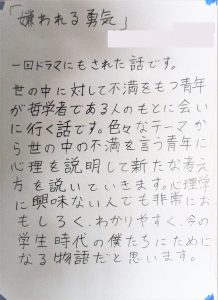 「嫌われる勇気」
一回ドラマにもされた話です。
世の中に対して不満をもつ青年
が哲学者である人のもとに会い
に行く話です。色々なテーマか
ら世の中の不満を言う青年に
心理を説明して新たな考え
方を説いていきます。心理学
に興味ない人でも非常にお
もしろく、わかりやすく、今の
学生時代の僕たちにために
なる物語だと思います。